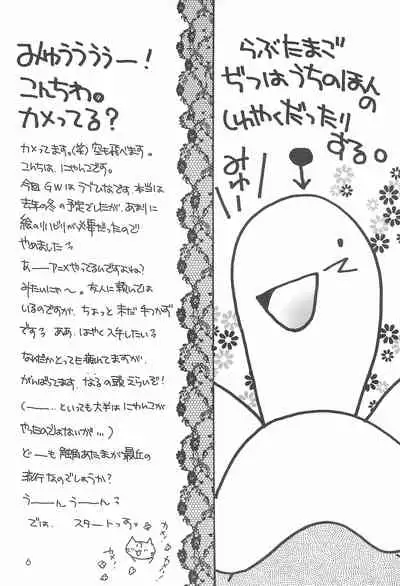 みゅうううぅー!
こんちわ。
カメってる?
カメってます。(笑)空も飛べます。
こんちは、にゃんこです。
今回GWはラブひなです、本当は
去年の冬の予定でしたが、あまりに
絵のリハビリが必要だったので
やめました
あーアニメやってるんですよね?
みたいにゃ〜。友人に頼んでは
いるのですが、ちょっと未だ手つかず
です ああ、はやく入手したいる
なんだかとっても疲れてますが、
がんばってます、なるの頭えらいぞ!
(ー といっても大半はにゃんこが
やったのではないが…)
どーも触角あたまが最近の
流行なのでしょうか?
うーんうーん?
では、スタートっす
らぶたまご
じつはうちのほん
の
しゅやくだったり
する。
みゅー
6